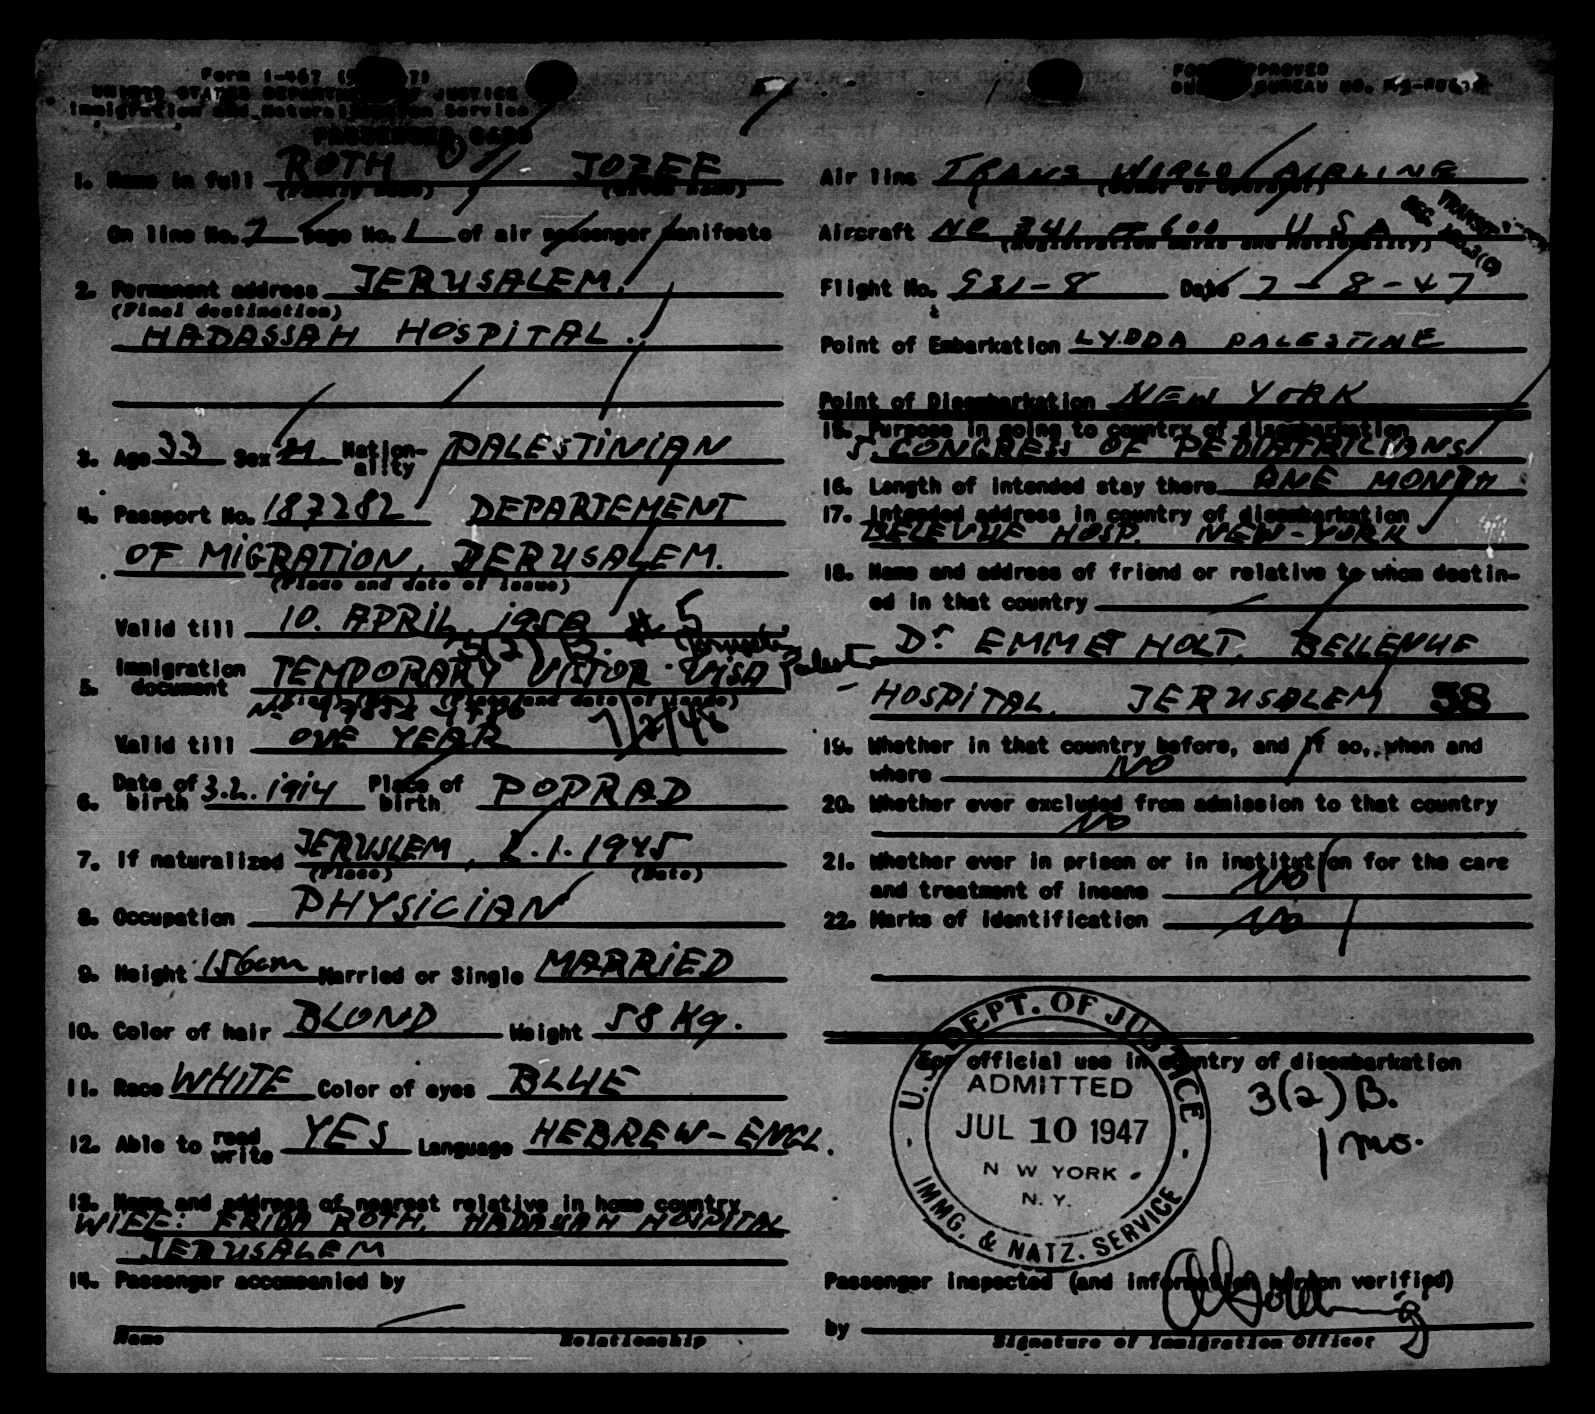 Form I-467
UNITED STATES DEPARTMENT OF JUSTICE
Immigration and Naturalization Service
PASSENGER CARD
1. Name in full ROTH JOZEF
(Family name) (Given name)
On line No. 7 page No. 1 of air passenger manifests
2. Permanent address JERUSALEM.
(Final destination)
HADASSAH HOSPITAL.
3. Age 33 Sex M. Nationality PALESTINIAN
4. Passport No. 187282 DEPARTEMENT
OF MIGRATION, JERUSALEM.
(Place and date of issue)
Valid till 10. APRIL. 1950 # 5
3(2) B.
5. Immigration document TEMPORARY VISITOR VISA Palestine
(Place and date of issue)
Valid till ONE YEAR
6. Date of birth 3.2.1914 Place of birth POPRAD
7. If naturalized JERUSLEM, 2.1.1945
(Place) (Date)
8. Occupation PHYSICIAN
9. Height 156cm Married or Single MARRIED
10. Color of hair BLOND Weight 58 Kg.
11. Race WHITE Color of eyes BLUE
12. Able to read write YES Language HEBREW-ENGL.
13. Name and address of nearest relative in home country
WIFE: FRIDA ROTH, HADASSAH HOSPITAL
JERUSALEM
14. Passenger accompanied by
Name Relationship
FORM APPROVED
BUDGET BUREAU NO.
Air line TRANS WORLD AIRLINE
(Owner or operator)
Aircraft NC 341 U S A
(Registration marks and nationality)
TRANSIT
SEC. 3(2)
Flight No. 931-8 Date 7-8-47
Point of Embarkation LYDDA PALESTINE
Point of Disembarkation NEW YORK
15. Purpose in going to country of disembarkation
5. CONGRESS OF PEDIATRICIANS
16. Length of intended stay there ANE MONTH
17. Intended address in country of disembarkation
BELEVUE HOSP. NEW-YORK
18. Name and address of friend or relative to whom destin-
ed in that country
Dr. EMMET HOLT. BELLEVUE
HOSPITAL. JERUSALEM 58
19. Whether in that country before, and if so, when and
where NO
20. Whether ever excluded from admission to that country
NO
21. Whether ever in prison or in institution for the care
and treatment of insane NO
22. Marks of identification NO
For official use in country of disembarkation
U. S. DEPT. OF JUSTICE
ADMITTED
JUL 10 1947
N W YORK
N. Y.
IMMG. & NATZ. SERVICE
3(2) B.
1 mo.
Passenger inspected (and information hereon verified)
by
Signature of Immigration Officer